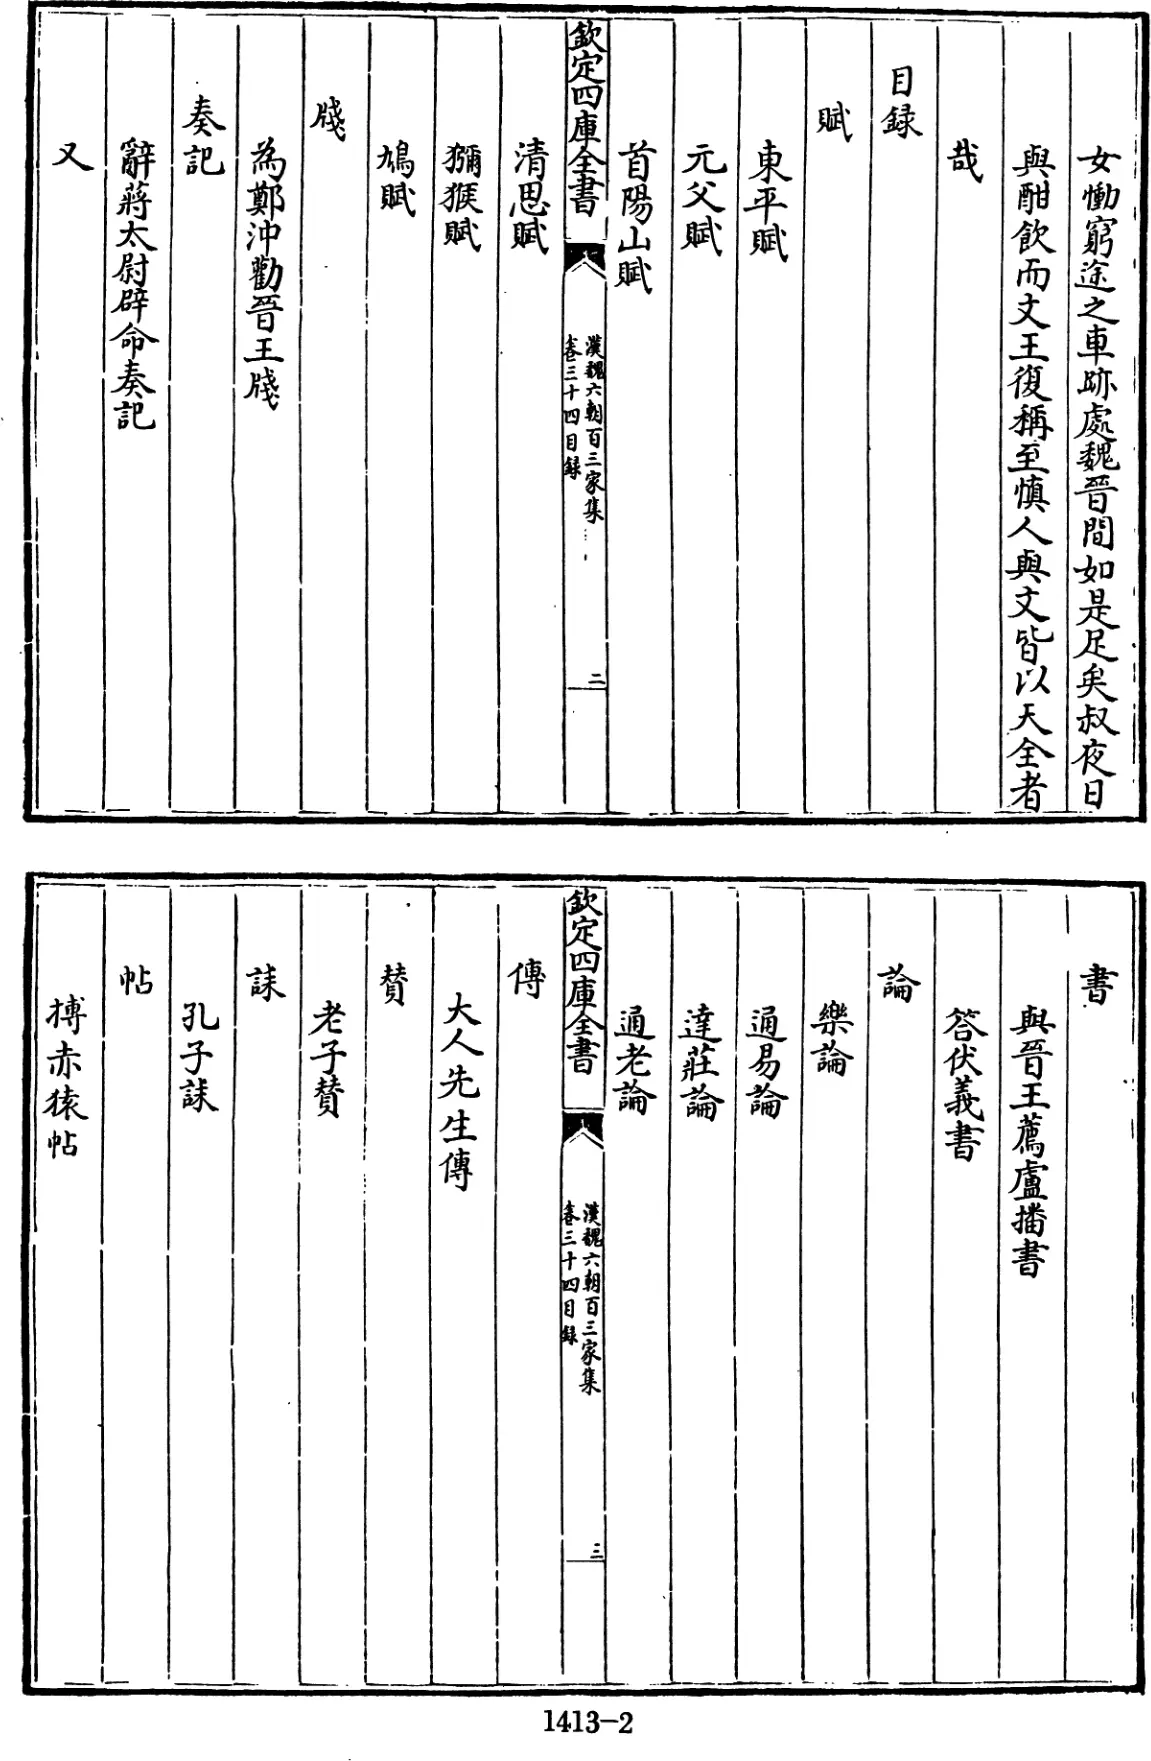 女慟窮途之車跡處魏晉間如是足矣叔夜日
與酣飲而文王復稱至慎人與文皆以天全者
哉
目錄
賦
東平賦
元父賦
首陽山賦
欽定四庫全書
漢魏六朝百三家集
卷三十四目錄
二
清思賦
獼猴賦
鳩賦
牋
為鄭沖勸晉王牋
奏記
辭蔣太尉辟命奏記
又
書
與晉王薦盧播書
答伏義書
論
樂論
通易論
達莊論
通老論
欽定四庫全書
漢魏六朝百三家集
卷三十四目錄
三
傳
大人先生傳
贊
老子贊
誄
孔子誄
帖
搏赤猿帖
1413-2